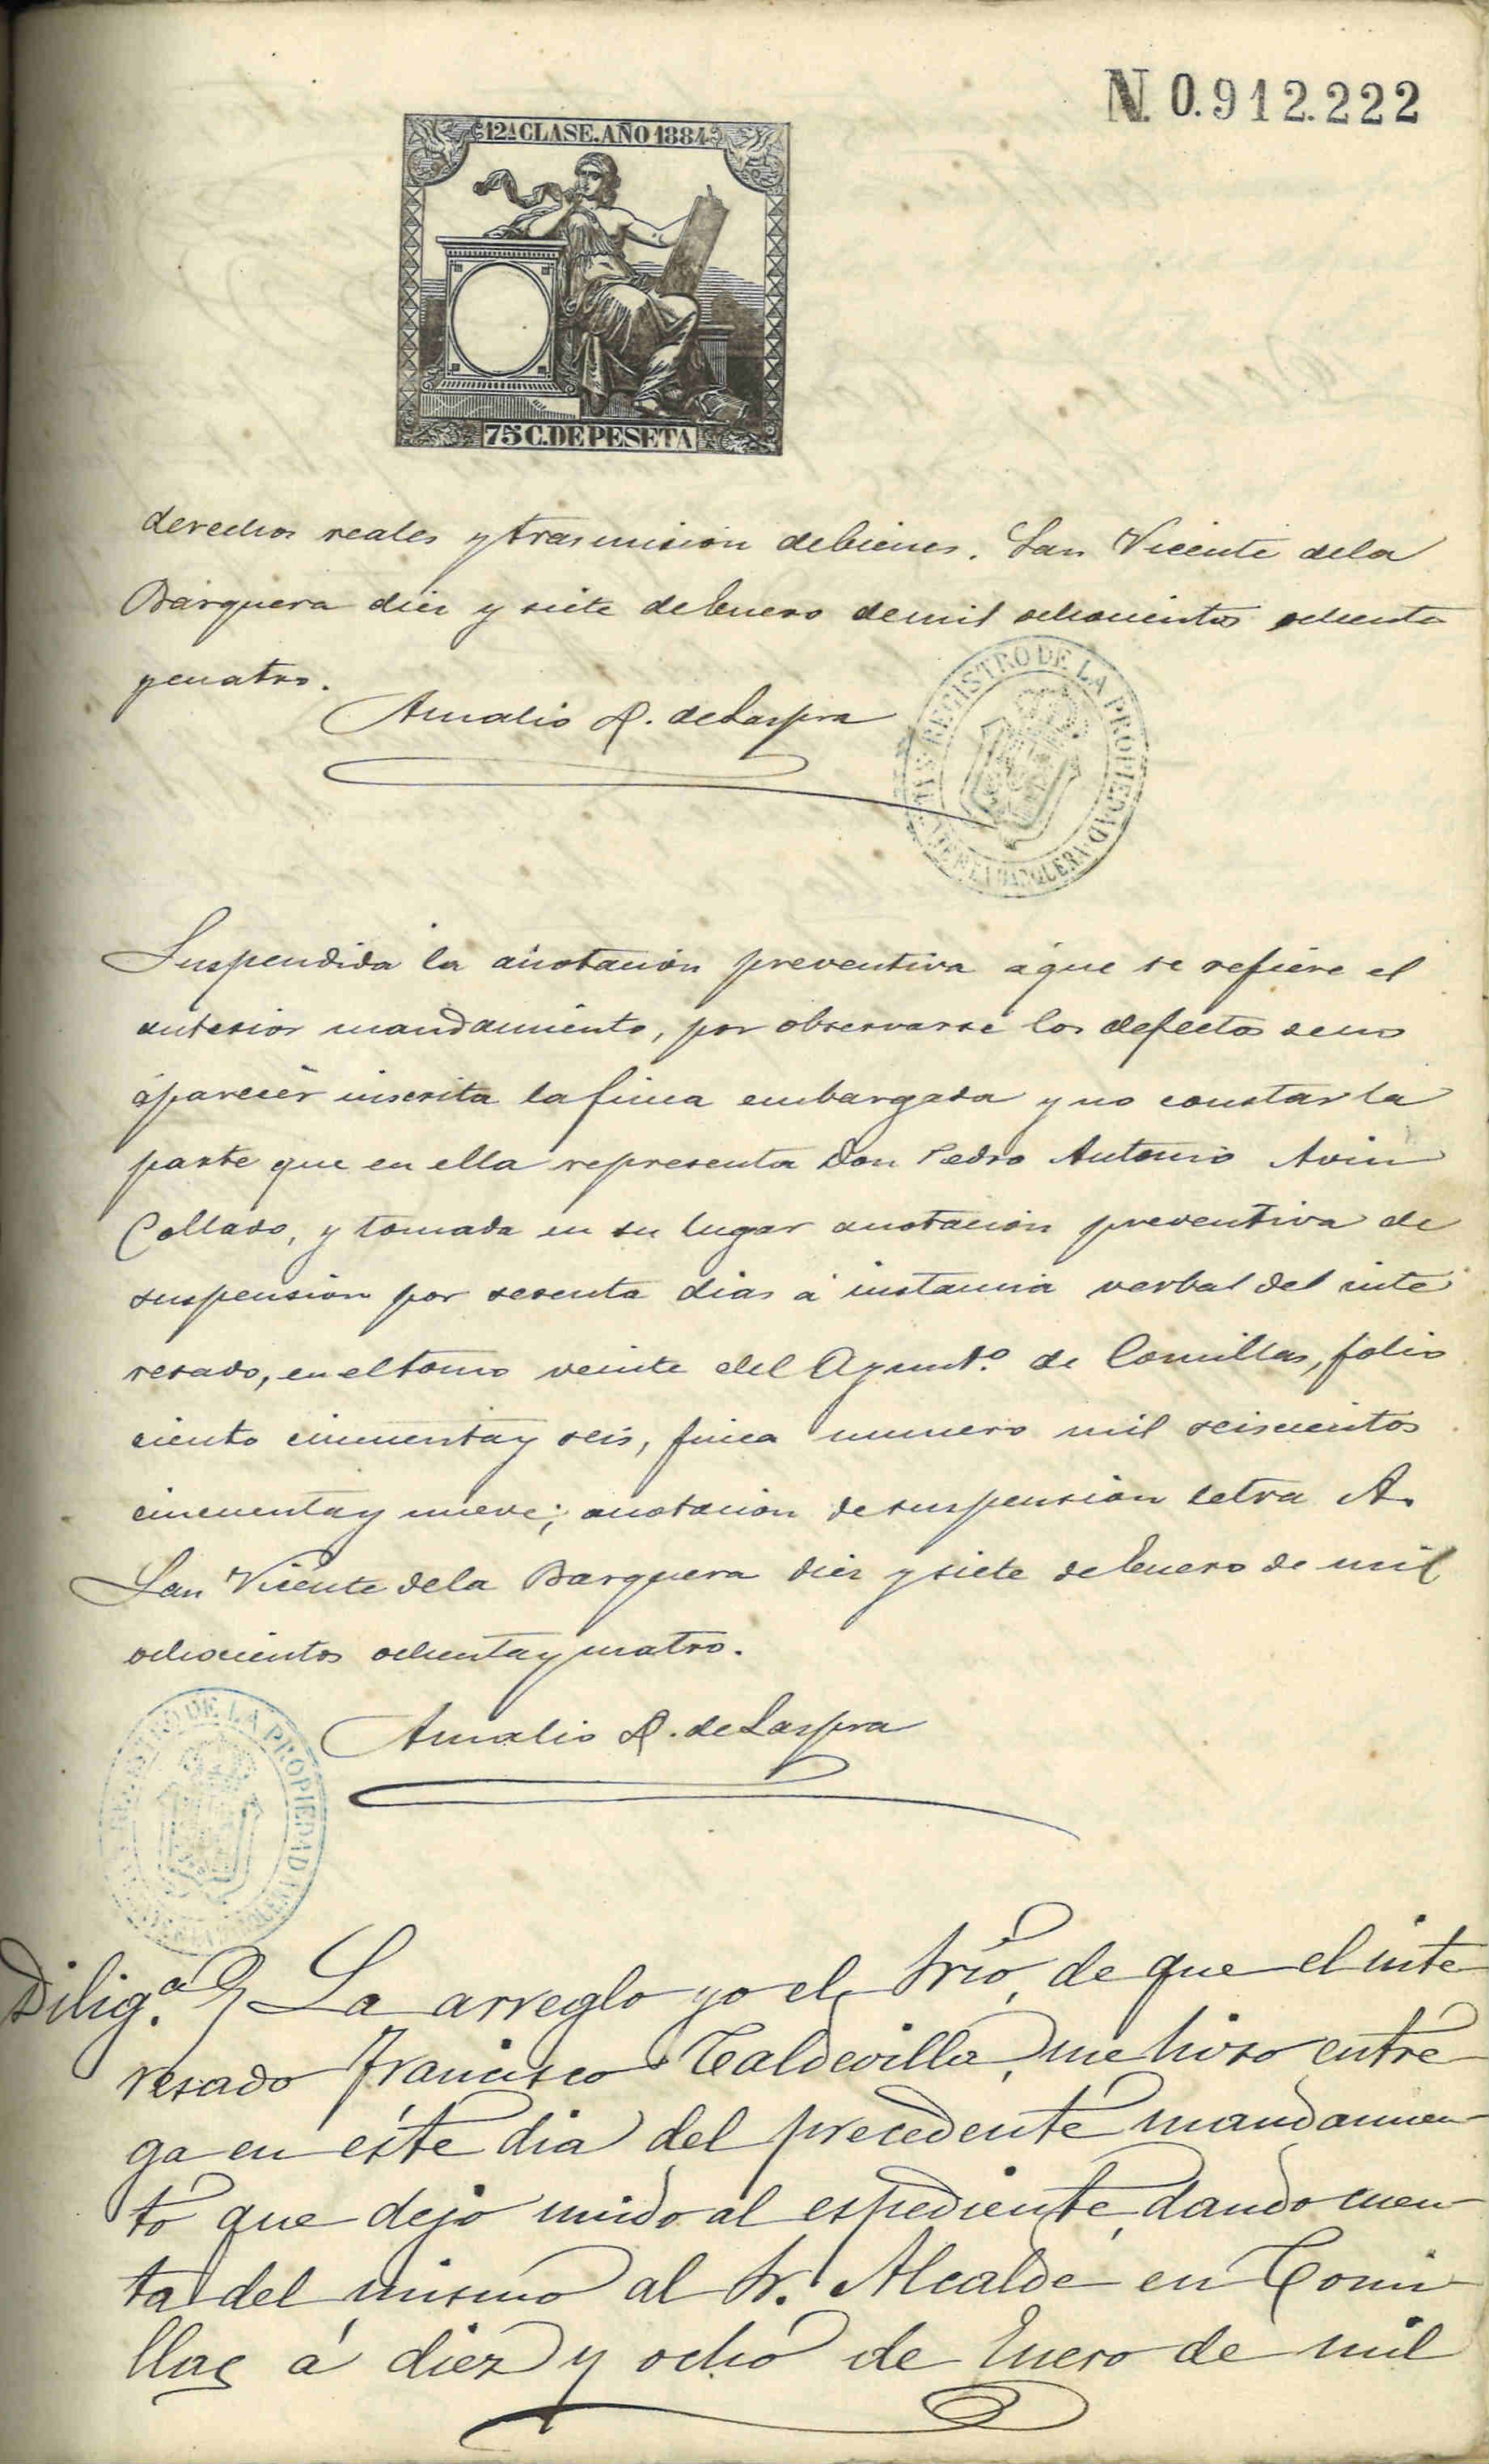 N. 0.912.222
12ª CLASE. AÑO 1884
75 C. DE PESETA
derechos reales y trasmisión de bienes. San Vicente de la
Barquera diez y siete de Enero de mil ochocientos ochenta
y cuatro.
Amalio R. de Laspra
REGISTRO DE LA PROPIEDAD
BARQUERA
Suspendida la anotación preventiva á que se refiere el
anterior mandamiento, por observarse los defectos de no
aparecer inscrita la finca embargada y no constar la
parte que en ella representa Don Pedro Antonio
Collado, y tomada en su lugar anotación preventiva de
suspensión por sesenta dias á instancia verbal del inte
resado, en el tomo veinte del Ayunt.º de Comillas, folio
ciento cincuenta y seis, finca numero mil seiscientos
cincuenta y nueve; anotación de suspensión letra A.
San Vicente de la Barquera diez y siete de Enero de mil
ochocientos ochenta y cuatro.
Amalio R. de Laspra
REGISTRO DE LA PROPIEDAD
Dilig.ª La arreglo yo el Srio, de que el inte
resado Francisco Caldevilla, me hizo entre
ga en éste dia del precedente mandamien
to que dejo unido al espediente, dando cuen
ta del mismo al Sr. Alcalde en Comi
llas á diez y ocho de Enero de mil